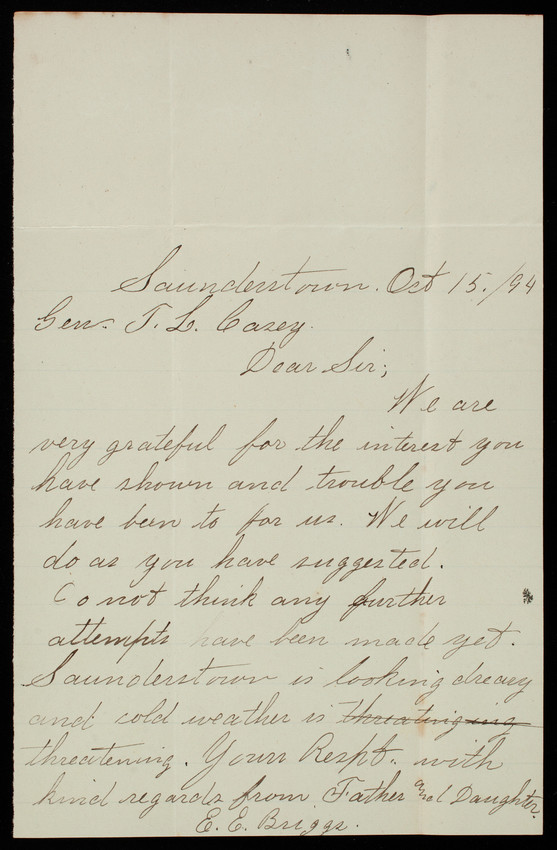 Saunderstown. Oct 15./94
Gen. T. L. Casey.
Dear Sir;
We are
very grateful for the interest you
have shown and trouble you
have been to for us. We will
do as you have suggested.
Do not think any further
attempts have been made yet.
Saunderstown is looking dreary
and cold weather is threatinging
threatening. Yours Respt. with
kind regards from Father and Daughter.
E. E. Briggs.